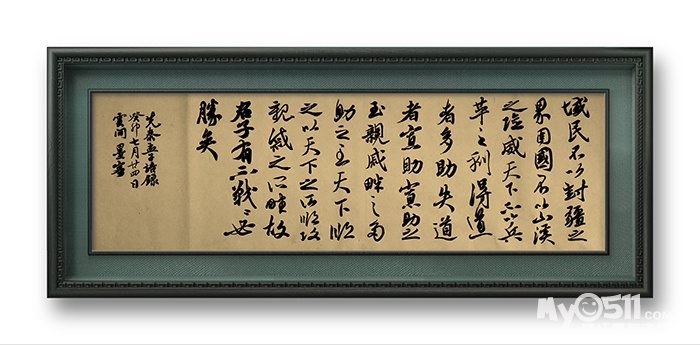 域民不以封疆之
界固國不以山溪
之險威天下不以兵
革之利得道
者多助失道
者寡助寡助之
至親戚畔之多
助之至天下順
之以天下之所順攻
親戚之所畔故
君子有不戰〻必
勝矣
先秦孟子語錄
癸卯七月廿四日
雲間 墨
My0511.COM